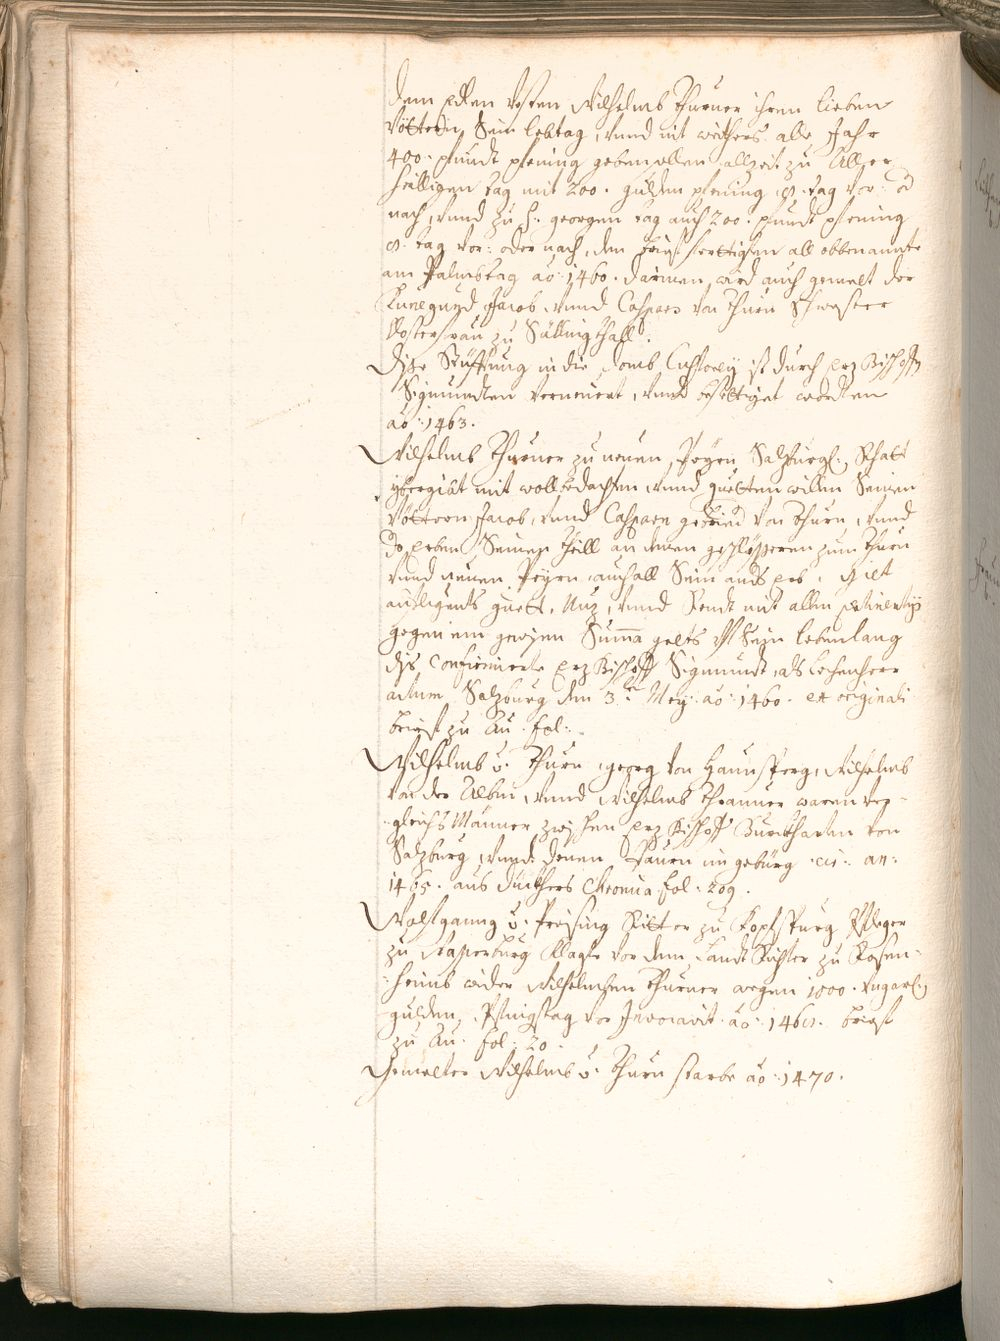 dem Edlen Vesten Wilhelmb Thurner ihren lieben
Vöttern, Sein lebtag, vnnd nit weithers alle Jahr
400. pfundt pfening geben allzeit zu Aller
heilligen tag mit 200. gulden pfening, 8. tag vor: od
nach, vnnd zu S: georgen tag auch 200. pfundt pfening
8. tag vor: oder nach, den brief fertigten all obbenannte
am Palmbtag aō: 1460. darinnen wird auch gemelt der
Kunegund Jacob vnnd Caspars von Thurn Schwester
Closterfrau zu
Dise Stüfftung in die Domb Custorey ist durch Erz Bischoff
Sigmundten verneuert, vnnd bestettiget worden
aō: 1463.
Wilhelmb Thurner zu neuen Peyrn Salzburg: Schatt
ybergibt mit wollbedachten vnnd guetten willen Seinen
Vöttern Jacob, vnnd Caspern gebried von Thurn, vnnd
do: erben Seinen theill an denen geschlösseren zum Thurn
vnnd neuen Peyrn, auch all Sein
guett, Nuz, vnnd Rendt mit allen pertinentijs
gegen ein gewisen Suma gelts auf Sein lebenlang
dis Confirmierte Erz Bischoff Sigmundt, als Lechenherr
actum Salzburg den 3.ten Mey: aō: 1460. ex originali
brief zu Au. fol:
Wilhelmb v. Thurn, georg von Haunsperg, Wilhelmb
von der Albm, vnnd Wilhelmb Thrauner waren ver-
gleichs Männer zwischen Erz Bischoff Burckharten von
Salzburg, vnnd denen Paurn im gebürg. an:
1465. aus Dückhers Chronica fol: 209.
Wolfganng v. Preising Ritter zu Kopfspurg Pfleger
zu Wasserburg klagte vor dem Landt Richter zu Rosen-
heimb wider Wilhelmben Thurner wegen 1000. Vngar:
gulden, Pfingstag vor Invocavit aō: 1468. brief
zu Au. fol: 20
Gemelter Wilhelmb v. Thurn starbe aō: 1470.